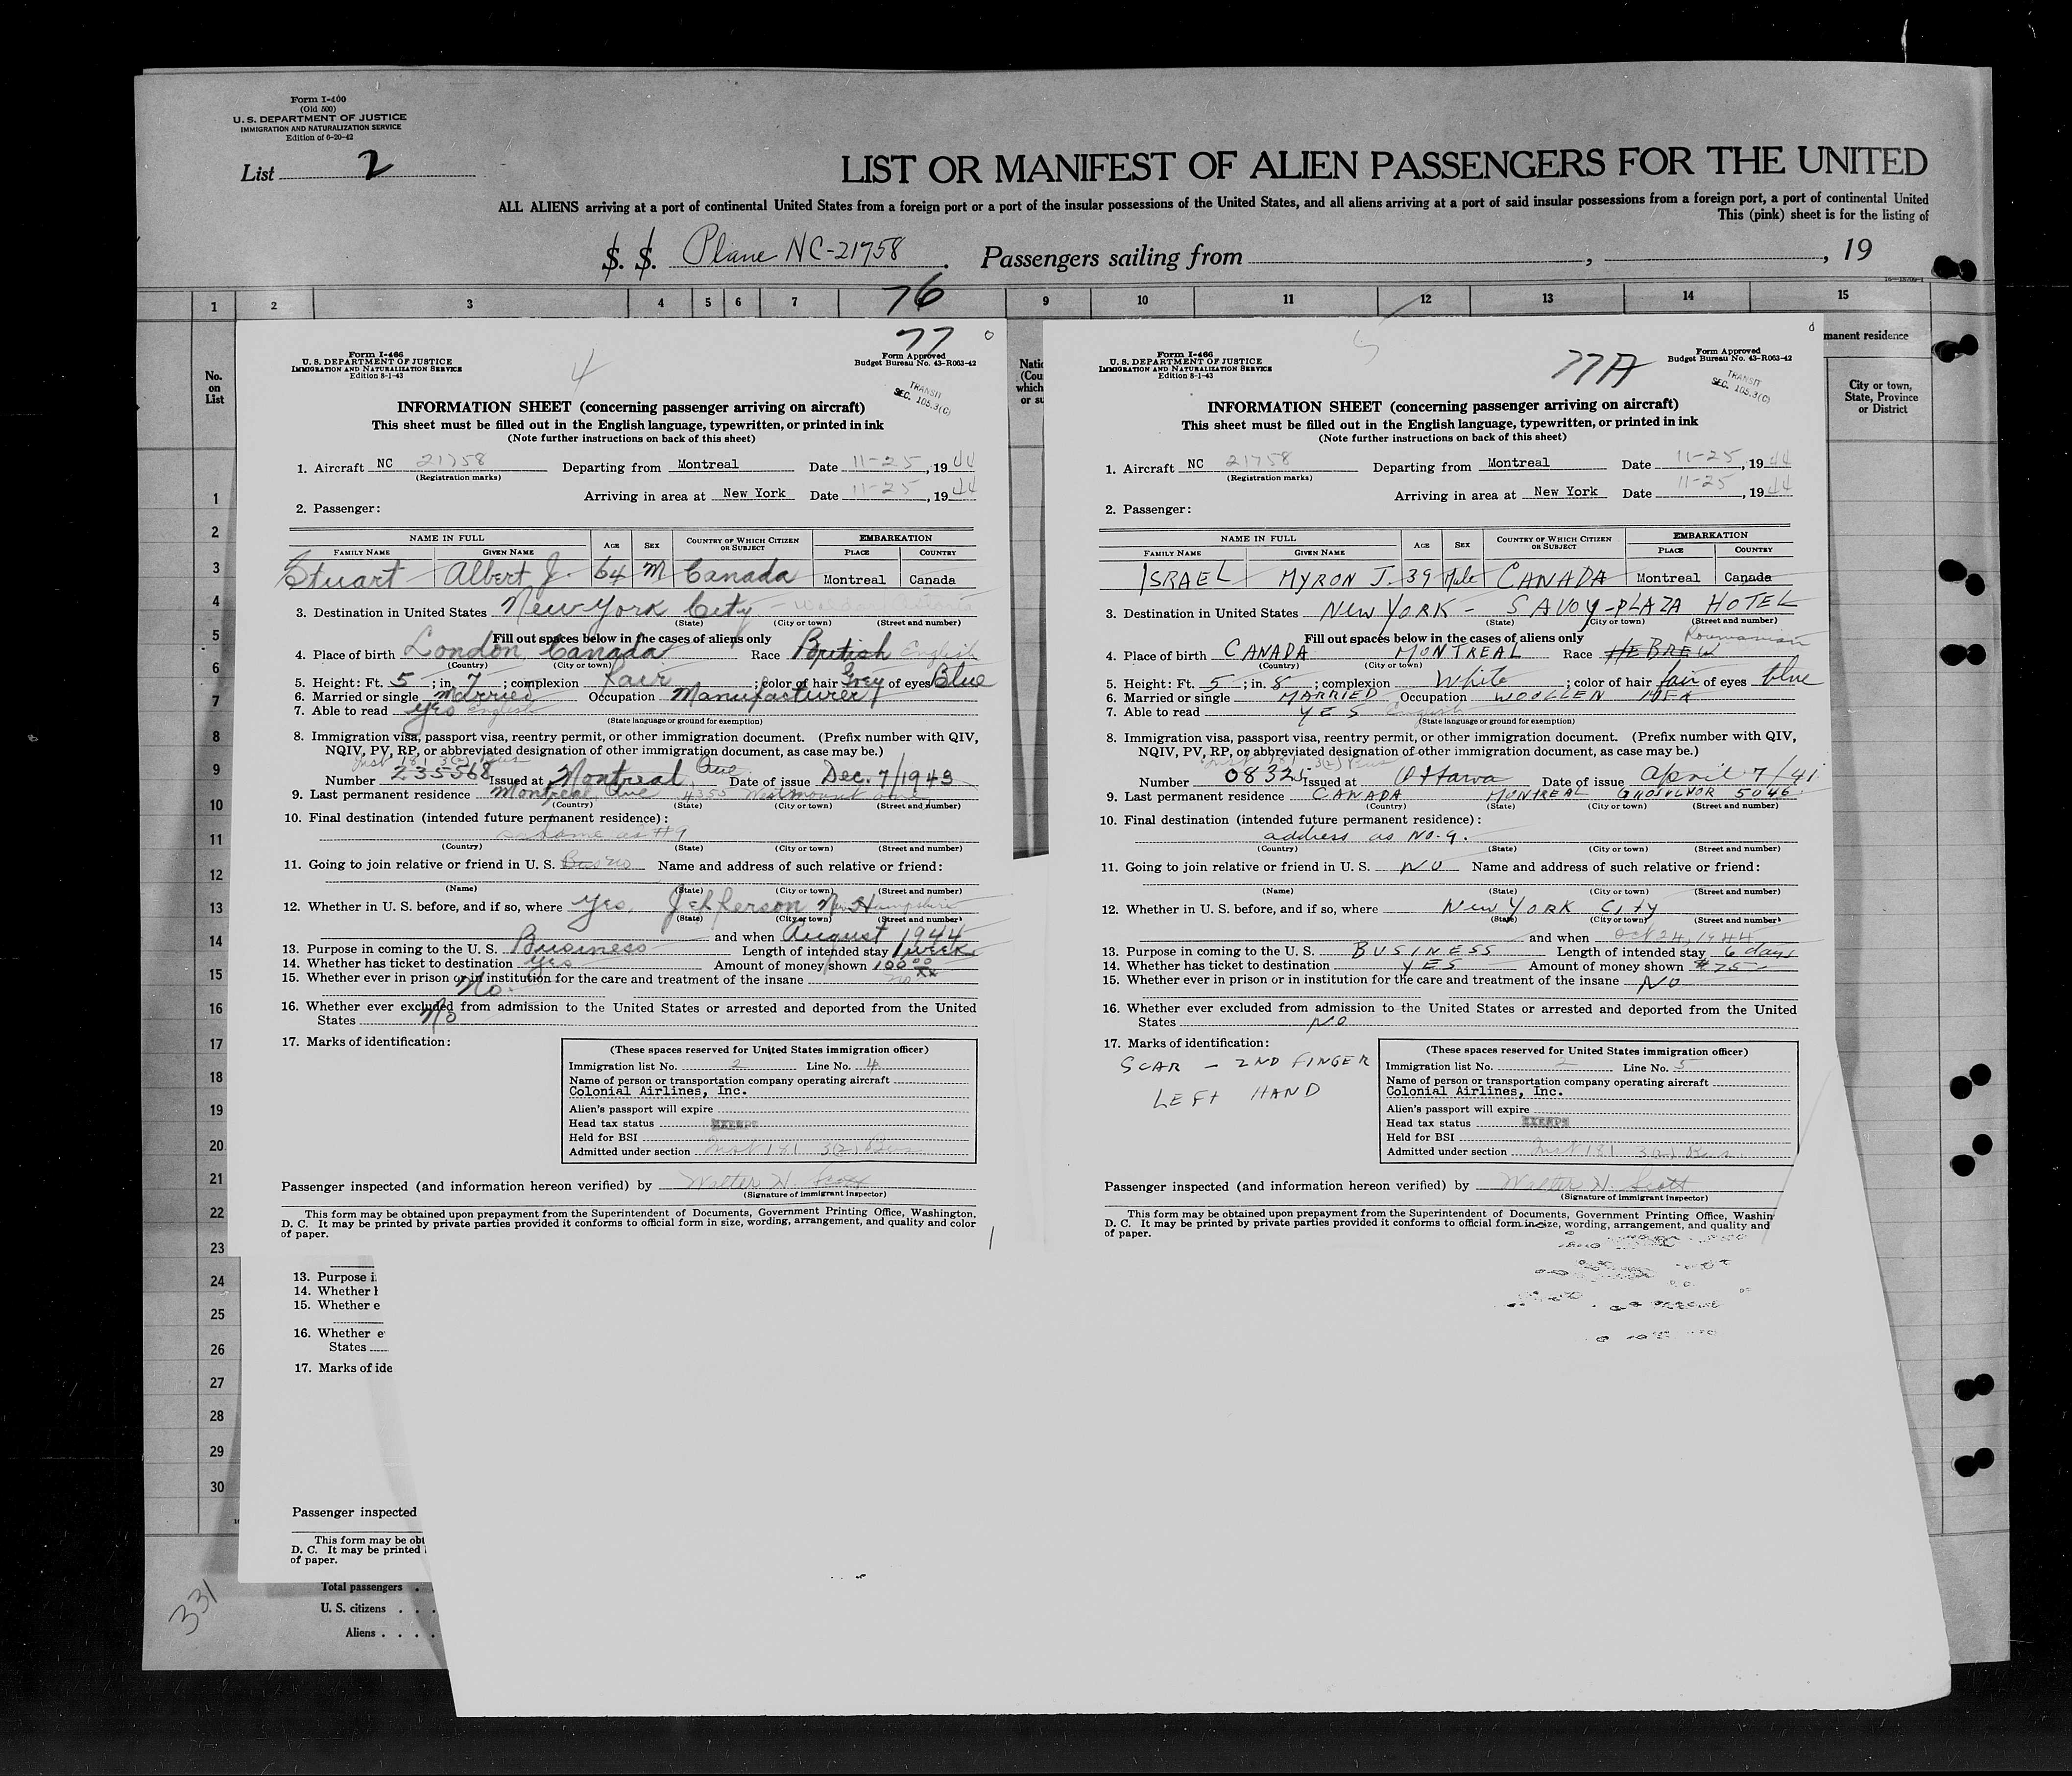 Form I-400
(Old 500)
U. S. DEPARTMENT OF JUSTICE
IMMIGRATION AND NATURALIZATION SERVICE
Edition of 6-20-42
List 2
LIST OR MANIFEST OF ALIEN PASSENGERS FOR THE UNITED
ALL ALIENS arriving at a port of continental United States from a foreign port or a port of the insular possessions of the United States, and all aliens arriving at a port of said insular possessions from a foreign port, a port of continental United
This (pink) sheet is for the listing of
S. S. Plane NC-21758. Passengers sailing from , , 19
1 2 3 4 5 6 7 76 9 10 11 12 13 14 15
No.
on
List
1
2
3
4
5
6
7
8
9
10
11
12
13
14
15
16
17
18
19
20
21
22
23
24
25
26
27
28
29
30
77
4
Form I-466
U. S. DEPARTMENT OF JUSTICE
IMMIGRATION AND NATURALIZATION SERVICE
Edition 8-1-43
Form Approved
Budget Bureau No. 43-R063-42
TRANSIT
SEC. 105.3(C)
INFORMATION SHEET (concerning passenger arriving on aircraft)
This sheet must be filled out in the English language, typewritten, or printed in ink
(Note further instructions on back of this sheet)
1. Aircraft NC 21758 Departing from Montreal Date 11-25, 1944
(Registration marks)
Arriving in area at New York Date 11-25, 1944
2. Passenger:
NAME IN FULL AGE SEX COUNTRY OF WHICH CITIZEN OR SUBJECT EMBARKATION
FAMILY NAME GIVEN NAME PLACE COUNTRY
Stuart Albert J. 64 M Canada Montreal Canada
3. Destination in United States New York City - Waldorf Astoria
(State) (City or town) (Street and number)
Fill out spaces below in the cases of aliens only
4. Place of birth London Canada Race British English
(Country) (City or town)
5. Height: Ft. 5; in. 7; complexion Fair; color of hair Grey of eyes Blue
6. Married or single Married Occupation Manufacturer
7. Able to read yes English
(State language or ground for exemption)
8. Immigration visa, passport visa, reentry permit, or other immigration document. (Prefix number with QIV,
NQIV, PV, RP, or abbreviated designation of other immigration document, as case may be.)
Inst 181 3(2) Bus
Number 235568 Issued at Montreal Que. Date of issue Dec. 7/1943
9. Last permanent residence Montreal Que 4355 Westmount Ave
(Country) (State) (City or town) (Street and number)
10. Final destination (intended future permanent residence):
same as #9
(Country) (State) (City or town) (Street and number)
11. Going to join relative or friend in U. S. no Name and address of such relative or friend:
(Name) (State) (City or town) (Street and number)
12. Whether in U. S. before, and if so, where yes, Jefferson New Hampshire
(State) (City or town) (Street and number)
and when August 1944
13. Purpose in coming to the U. S. Business Length of intended stay 1 week
14. Whether has ticket to destination yes Amount of money shown 100 00/xx
15. Whether ever in prison or in institution for the care and treatment of the insane no
No.
16. Whether ever excluded from admission to the United States or arrested and deported from the United
States No
17. Marks of identification:
(These spaces reserved for United States immigration officer)
Immigration list No. 2 Line No. 4
Name of person or transportation company operating aircraft
Colonial Airlines, Inc.
Alien's passport will expire
Head tax status EXEMPT
Held for BSI
Admitted under section Inst 181 3(2) Bus
Passenger inspected (and information hereon verified) by Walter H. Scott
(Signature of Immigrant Inspector)
This form may be obtained upon prepayment from the Superintendent of Documents, Government Printing Office, Washington,
D. C. It may be printed by private parties provided it conforms to official form in size, wording, arrangement, and quality and color
of paper.
Natio
(Cou
which
or su
5
77A
Form I-466
U. S. DEPARTMENT OF JUSTICE
IMMIGRATION AND NATURALIZATION SERVICE
Edition 8-1-43
Form Approved
Budget Bureau No. 43-R063-42
TRANSIT
SEC. 105.3(C)
INFORMATION SHEET (concerning passenger arriving on aircraft)
This sheet must be filled out in the English language, typewritten, or printed in ink
(Note further instructions on back of this sheet)
1. Aircraft NC 21758 Departing from Montreal Date 11-25, 1944
(Registration marks)
Arriving in area at New York Date 11-25, 1944
2. Passenger:
NAME IN FULL AGE SEX COUNTRY OF WHICH CITIZEN OR SUBJECT EMBARKATION
FAMILY NAME GIVEN NAME PLACE COUNTRY
ISRAEL MYRON J. 39 Male CANADA Montreal Canada
3. Destination in United States NEW YORK - SAVOY-PLAZA HOTEL
(State) (City or town) (Street and number)
Fill out spaces below in the cases of aliens only
4. Place of birth CANADA MONTREAL Race HEBREW Roumanian
(Country) (City or town)
5. Height: Ft. 5; in. 8; complexion White; color of hair fair of eyes blue
6. Married or single MARRIED Occupation WOOLLEN MER
7. Able to read YES English
(State language or ground for exemption)
8. Immigration visa, passport visa, reentry permit, or other immigration document. (Prefix number with QIV,
NQIV, PV, RP, or abbreviated designation of other immigration document, as case may be.)
Inst 181 3(2) Bus
Number 08325 Issued at Ottawa Date of issue April 7/41
9. Last permanent residence CANADA MONTREAL GROSVENOR 5046
(Country) (State) (City or town) (Street and number)
10. Final destination (intended future permanent residence):
address as No. 9.
(Country) (State) (City or town) (Street and number)
11. Going to join relative or friend in U. S. NO Name and address of such relative or friend:
(Name) (State) (City or town) (Street and number)
12. Whether in U. S. before, and if so, where NEW YORK CITY
(State) (City or town) (Street and number)
and when Oct 24, 1944
13. Purpose in coming to the U. S. BUSINESS Length of intended stay 6 days
14. Whether has ticket to destination YES Amount of money shown $75
15. Whether ever in prison or in institution for the care and treatment of the insane NO
16. Whether ever excluded from admission to the United States or arrested and deported from the United
States NO
17. Marks of identification:
SCAR - 2ND FINGER
LEFT HAND
(These spaces reserved for United States immigration officer)
Immigration list No. 2 Line No. 5
Name of person or transportation company operating aircraft
Colonial Airlines, Inc.
Alien's passport will expire
Head tax status EXEMPT
Held for BSI
Admitted under section Inst 181 3(2) Bus
Passenger inspected (and information hereon verified) by Walter H. Scott
(Signature of Immigrant Inspector)
This form may be obtained upon prepayment from the Superintendent of Documents, Government Printing Office, Washin
D. C. It may be printed by private parties provided it conforms to official form in size, wording, arrangement, and quality and
of paper.
manent residence
City or town,
State, Province
or District
13. Purpose i
14. Whether h
15. Whether e
16. Whether e
States
17. Marks of ide
Passenger inspected
This form may be obt
D. C. It may be printed
of paper.
Total passengers
U. S. citizens
Aliens
331